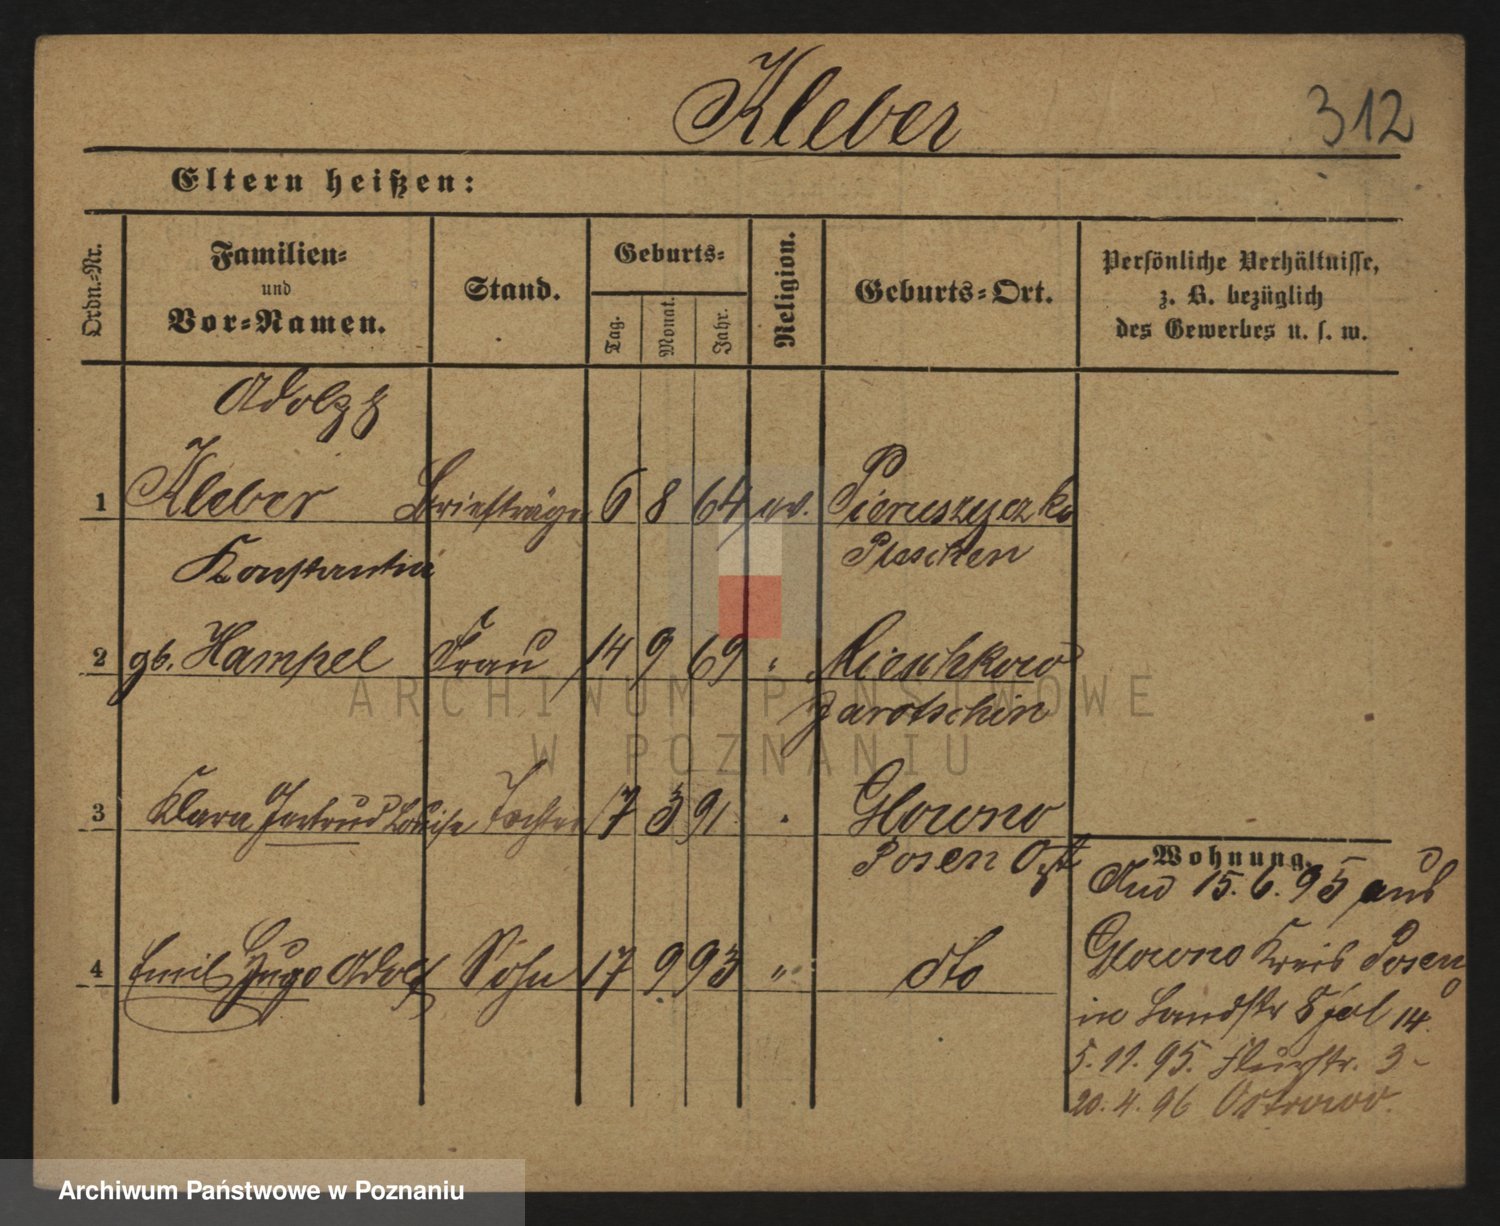 Kleber
312
Eltern heißen:
Ordn.-Nr.
Familien-
und
Vor-Namen.
Stand.
Geburts-
Tag.
Monat.
Jahr.
Religion.
Geburts-Ort.
Persönliche Verhältnisse,
z. B. bezüglich
des Gewerbes u. s. w.
Adolph
1 Kleber Briefträger 6 8 64 ev. Pieruszyczko
Pleschen
Konstantia
2 gb. Hampel Frau 14 9 69 " Mieschkow
Jarotschin
3 Klara Gertrud Louise Tochter 17 3 91 " Glowno
Posen Ost
4 Emil Hugo Adolf Sohn 17 9 93 " dto
Wohnung.
15. 6. 95 aus
Glowno Kreis Posen O
in Landstr 14.
5. 11. 95. 3
20. 4. 96 Ostrowo.
ARCHIWUM PAŃSTWOWE
W POZNANIU
Archiwum Państwowe w Poznaniu